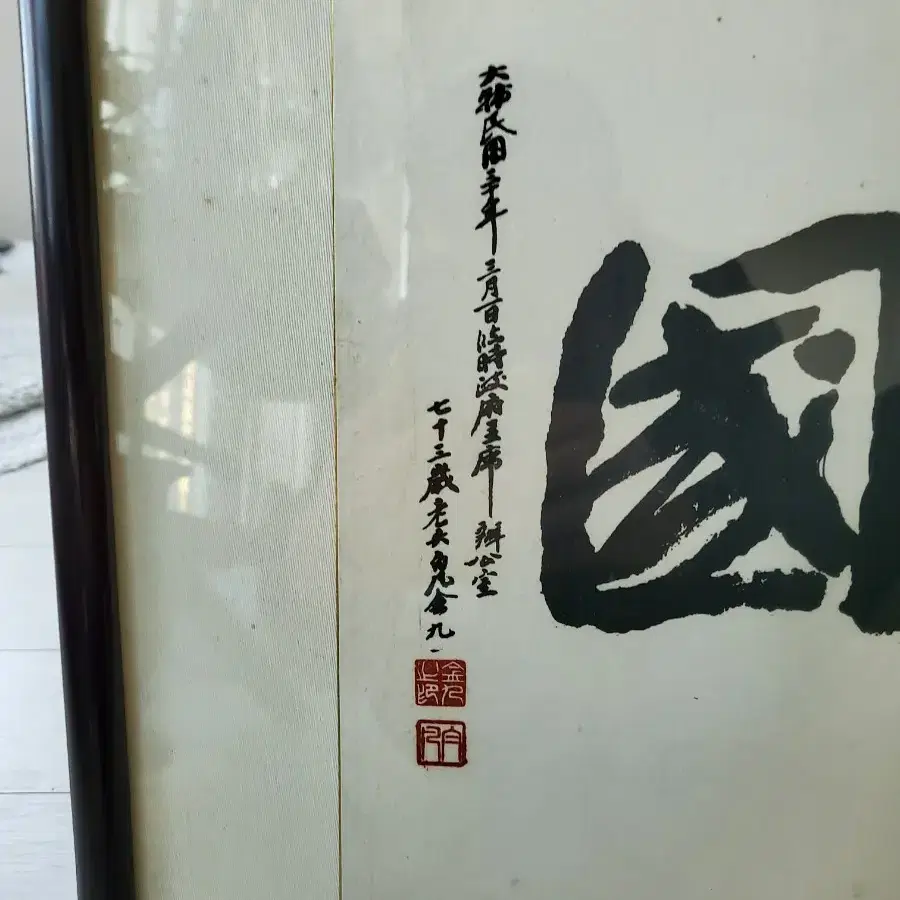 國
大韓民國三十年三月一日臨時政府主席辦公室
七十三歲老夫白凡金九
金九之印
白凡